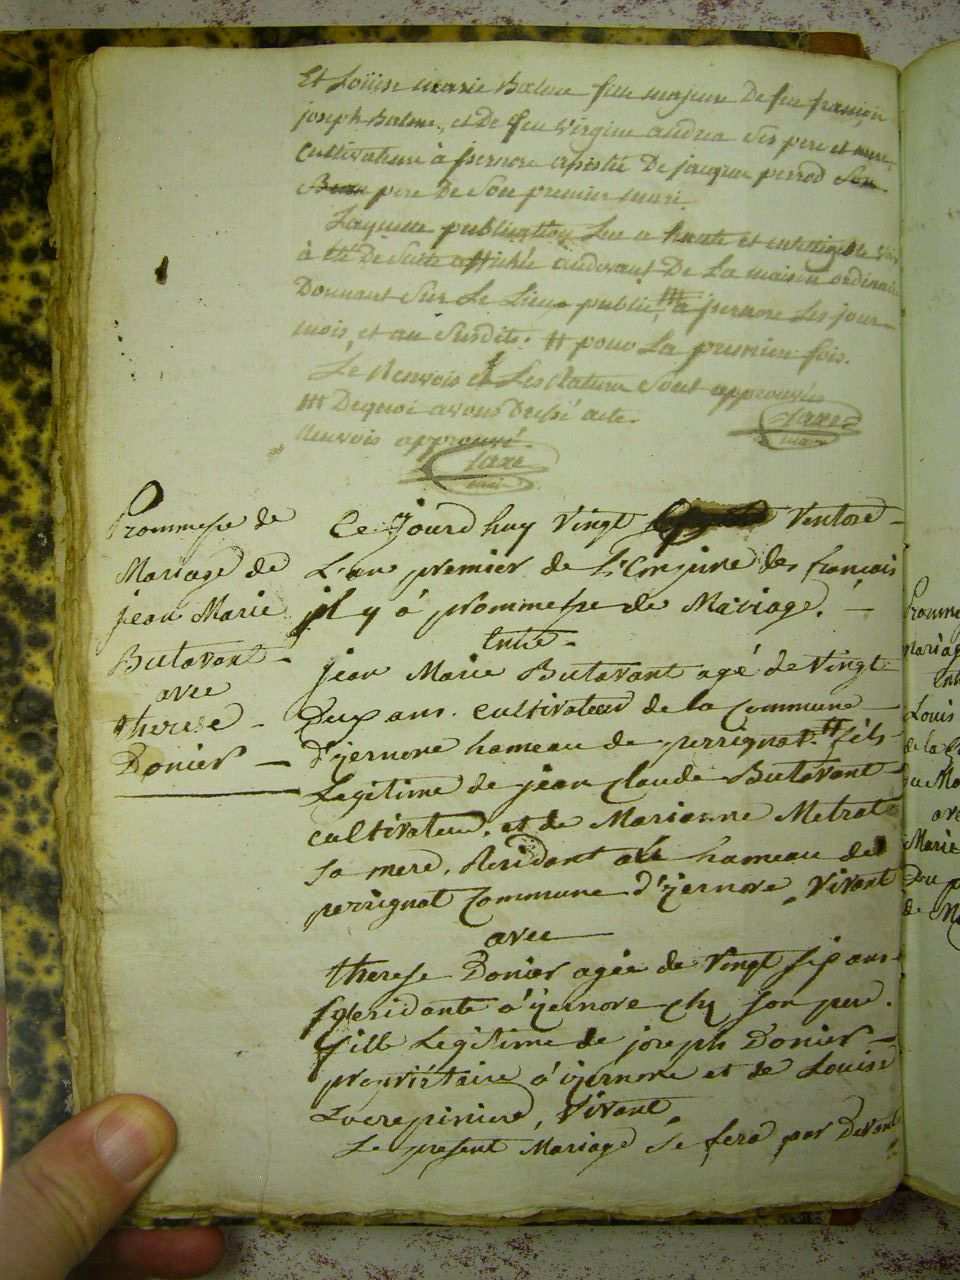 Et Loüise marie Balme feu majeure De feu françois
joseph Balme, et De feu Virginie andrea Ses pere et mere
Cultivateurs à jsernore De jacque perrod Son
Beau pere De Son premier mari.
Laquelle publication Lue a haute et intelligeble voix
à été De Suite affichée audevant De La maison ordinaire
Donnant Sur Le Lieux public, ttt à jsernore Les jour
mois, et an Susdits: tt pour La premiere fois.
Le Renvois et Les Rature Sont approuvés
ttt Dequoi avons Dressé acte.
Renvois approuvé
Prommesse de
Mariage de
jean Marie
Butavant
avec
therese
Donier
Ce Jourd huy Vingt Ventose
L'an premier de L'Empire des francais
jl y à prommesse de Mariage.
Entre
jean Marie Butavant agé de Vingt
Deux ans. cultivateur de la Commune
D'yzernore hameau de perrignat. tt fils
Legitime de jean Claude Butavant
cultivateur. et de Marianne Metrat
Sa mere, Residant hameau de
perrignat Commune d'yzernore, Vivant
avec
therese Donier agée de Vingt Sep ans
Residante à yzernore chz Son pere.
fille Legitime de joseph Donier
propriétaire à yzernore et de Louise
Lacrepiniere, Vivant
Le present Mariage Se fera par Devant
Louis
Marie